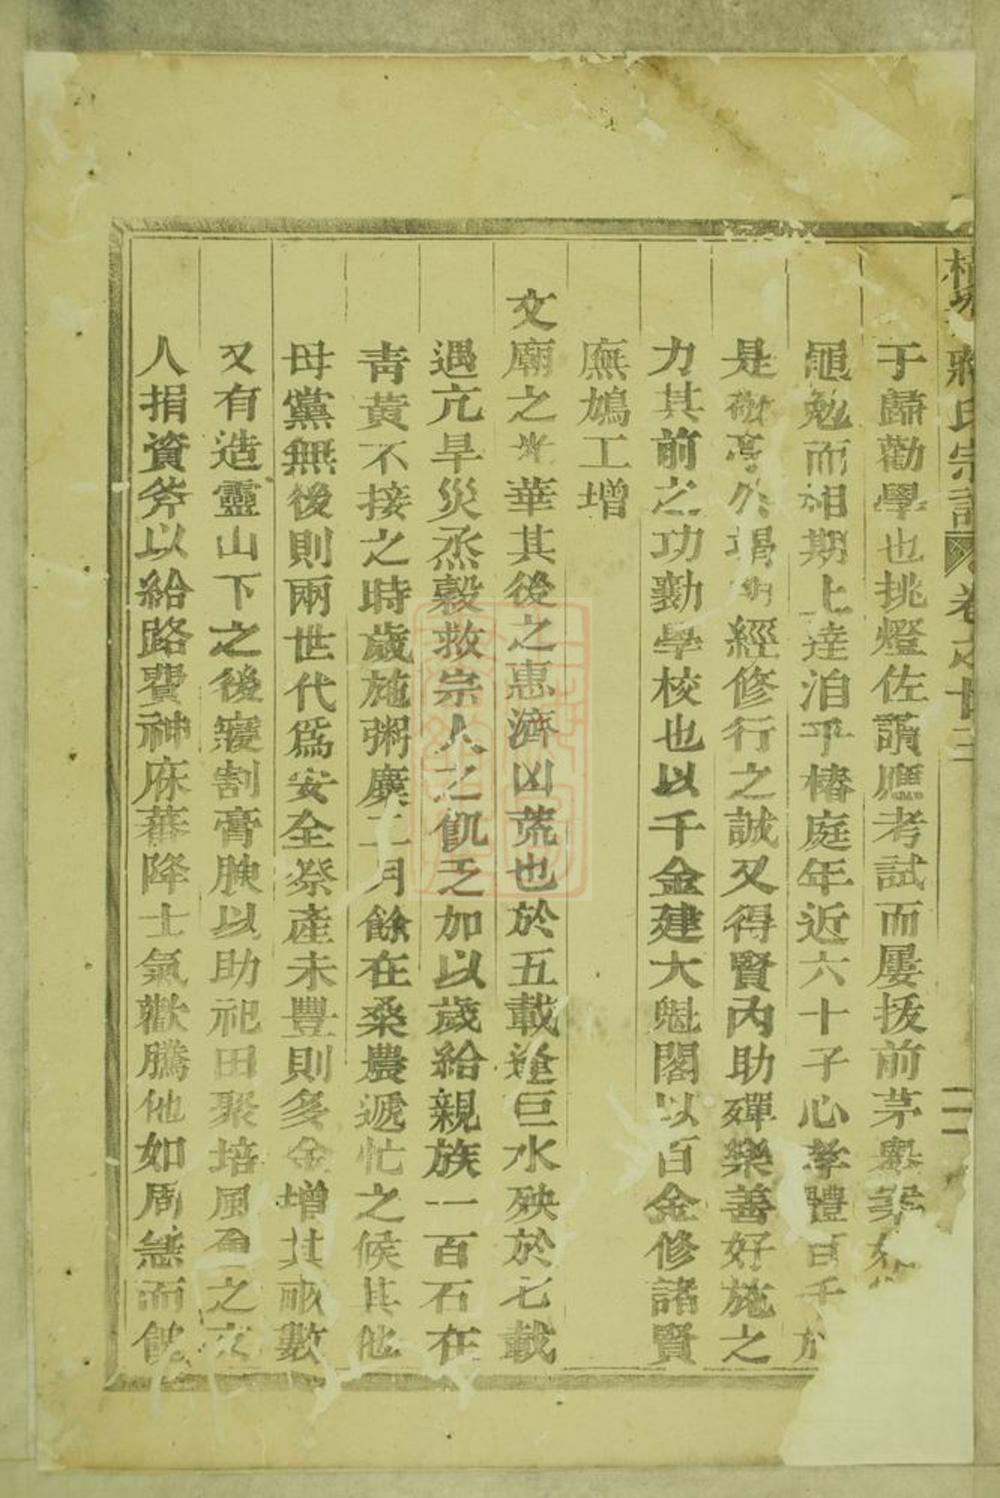 蔣氏宗譜 卷之廿三
于歸勸學也挑燈佐讀應考試而屢拔前茅
黽勉而相期上達洎乎椿庭年近六十子心孝體百千
是敬亭公竭明經修行之誠又得賢內助殫樂善好施之
力其前之功勷學校也以千金建大魁閣以百金修諸賢
廡鳩工增
文廟之光華其後之惠濟凶荒也於五載逢巨水殃於七載
遇亢旱災烝穀救宗人之飢乏加以歲給親族一百石在
青黃不接之時歲施粥糜二月餘在桑農遞忙之候其他
母黨無後則兩世代爲安全祭產未豐則多金增其畝數
又有造靈山下之後寢割膏腴以助祀田聚培風之文
人捐資斧以給路費神庥蕃降士氣歡騰他如周急而